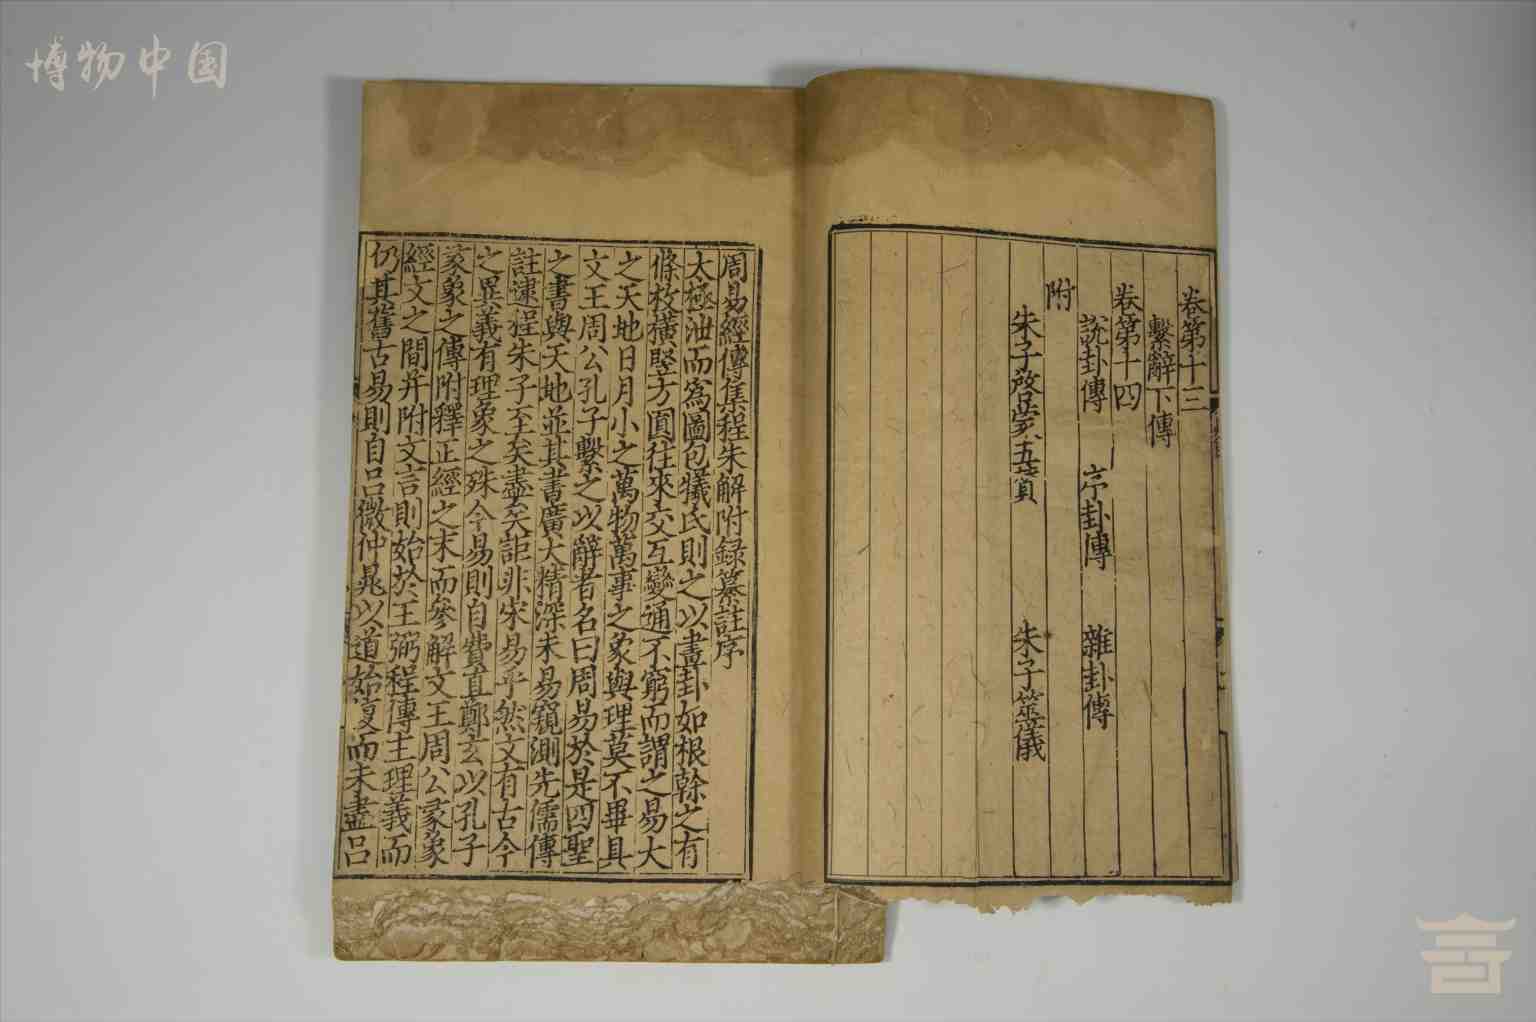 博物中国
卷第十三
繫辭下傳
卷第十四
說卦傳 序卦傳 雜卦傳
附
朱子啓蒙五贊 朱子筮儀
周易經傳集程朱解附録纂註序
太極泄而爲圖包犧氏則之以畫卦如根榦之有
條枚橫竪方圓往來交互變通不窮而謂之易大
之天地日月小之萬物萬事之象與理莫不畢具
文王周公孔子繫之以辭者名曰周易於是四聖
之書與天地並其書廣大精深未易窺測先儒傳
註逮程朱子至矣盡矣詎非宋易乎然文有古今
之異義有理象之殊今易則自費直鄭玄以孔子
彖象之傳附釋正經之末而參解文王周公彖象
經文之間并附文言則始於王弼程傳主理義而
仍其舊古易則自呂微仲晁以道始復而未盡呂